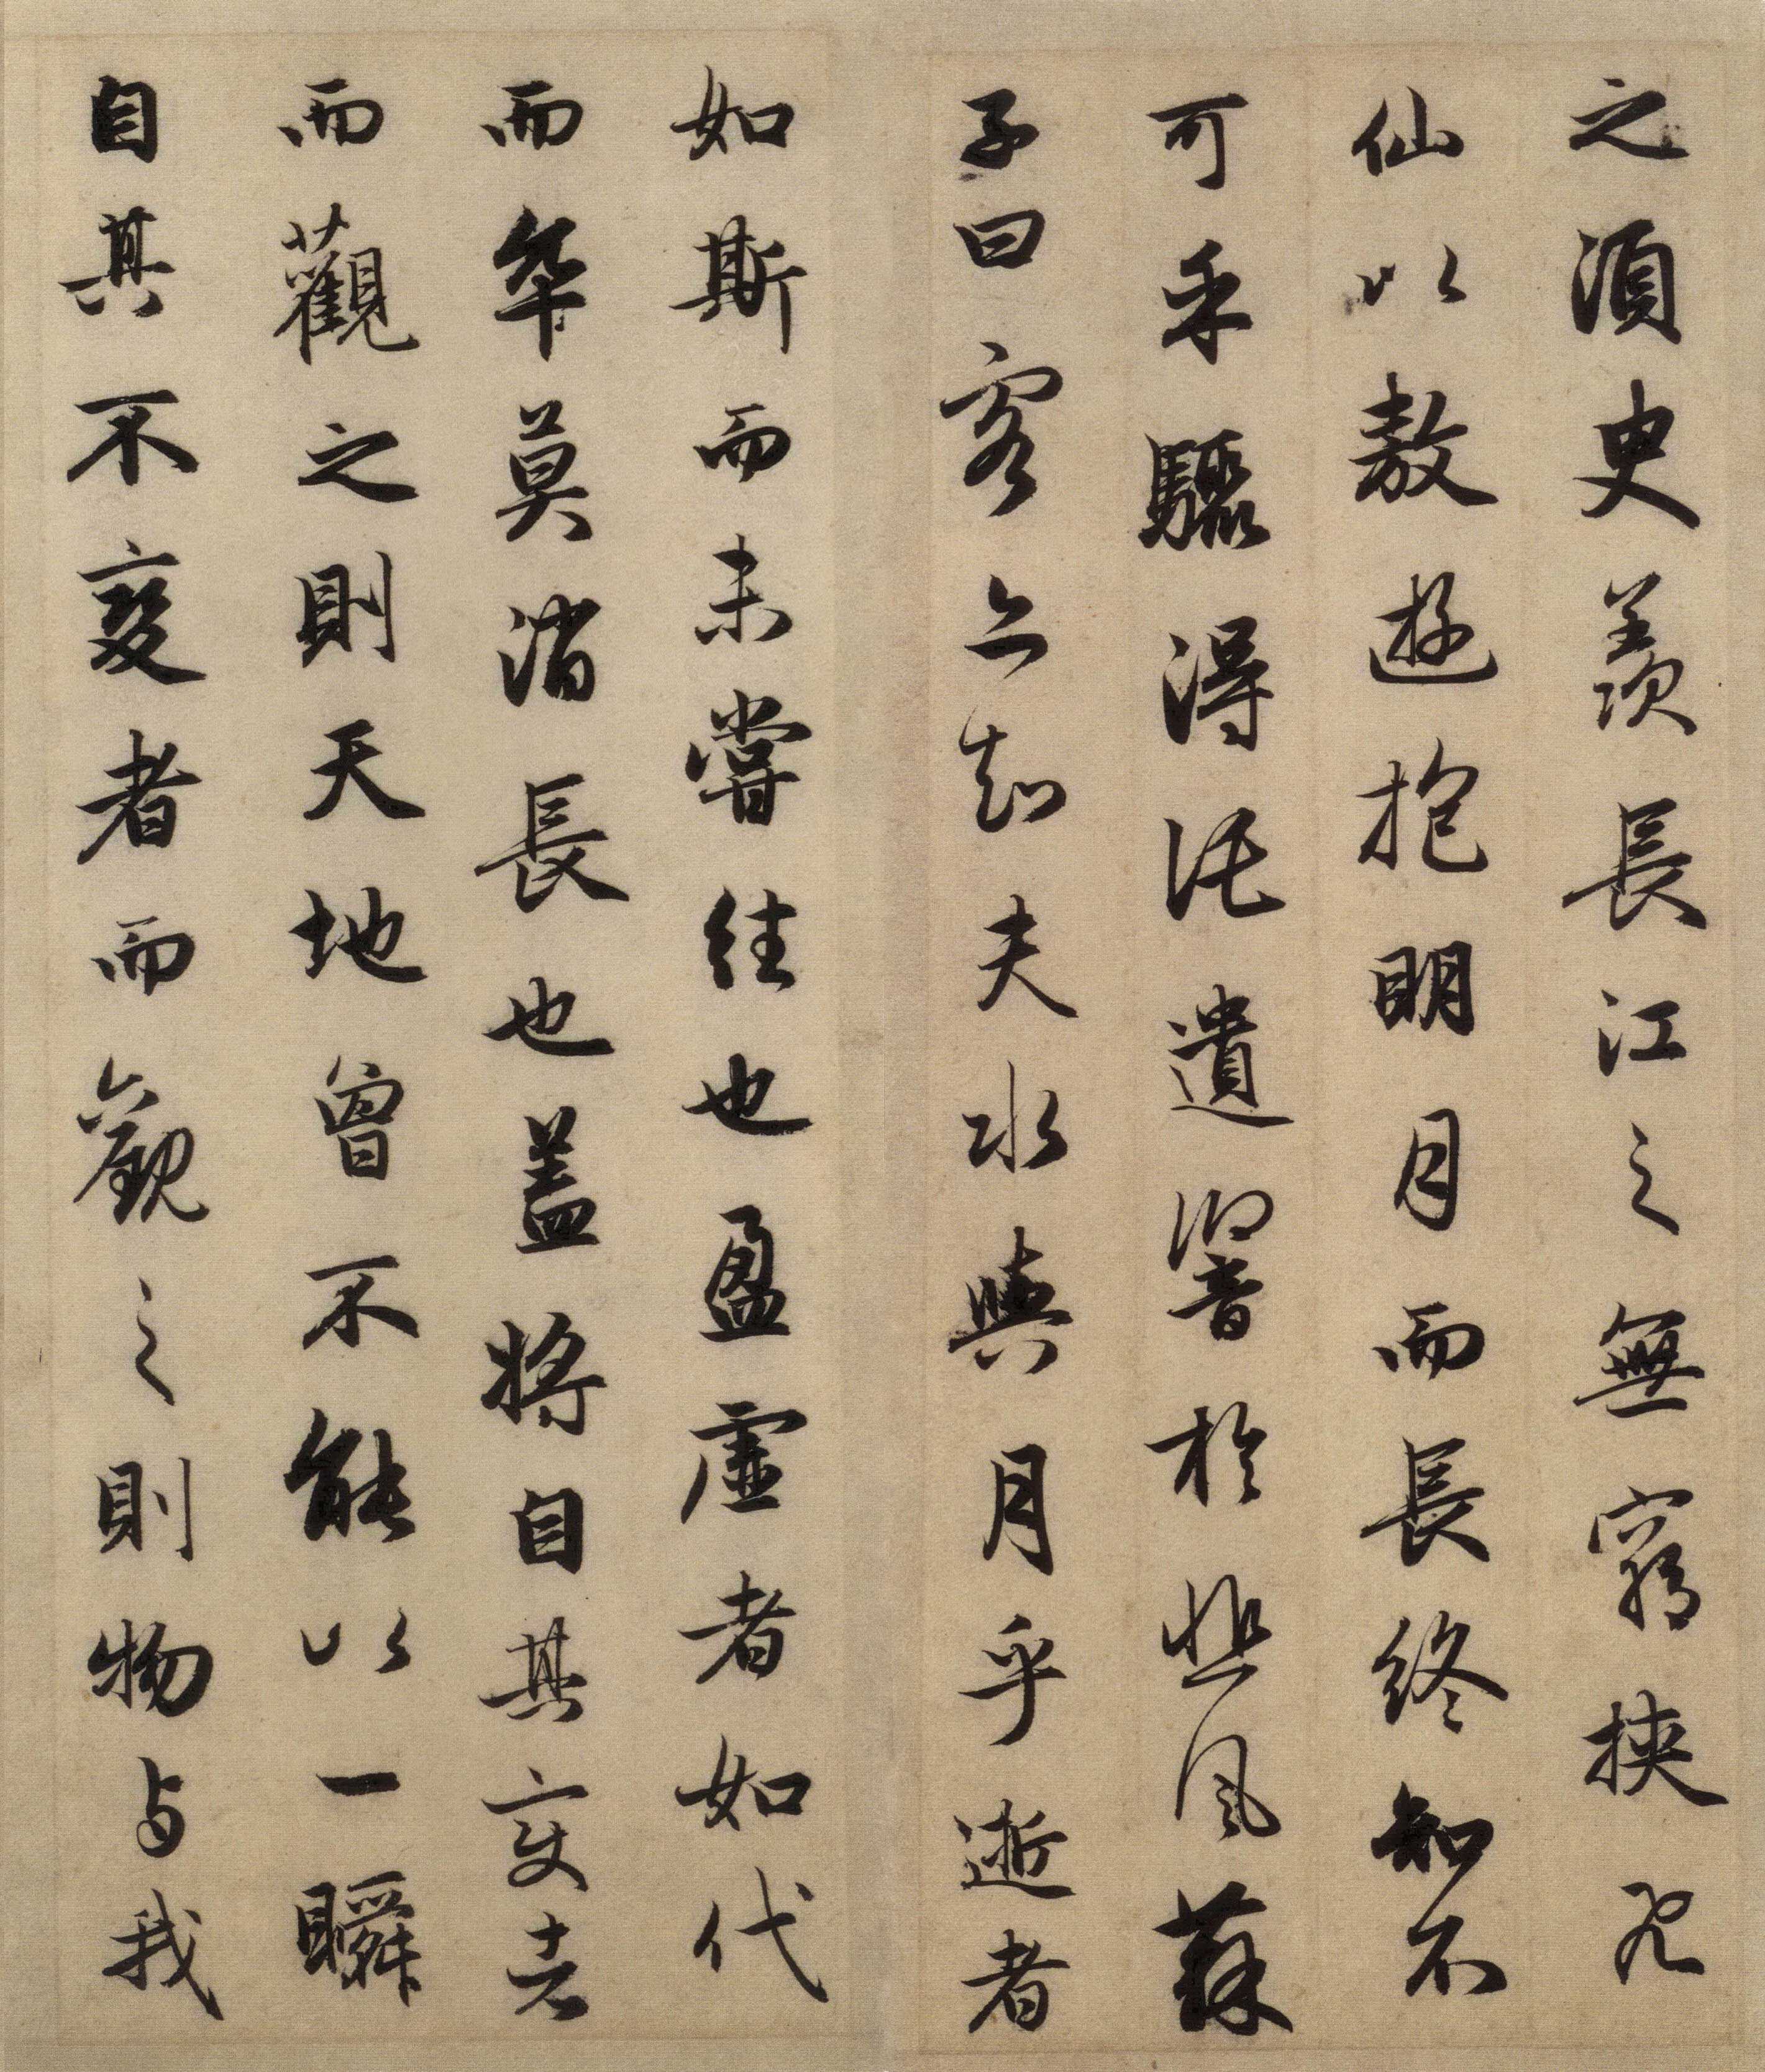 之須臾羨長江之無窮挾飛
仙以遨遊抱明月而長終知不
可乎驟得託遺響於悲風蘇
子曰客亦知夫水與月乎逝者
如斯而未嘗往也盈虛者如代
而卒莫消長也蓋將自其變者
而觀之則天地曾不能以一瞬
自其不變者而觀之則物与我